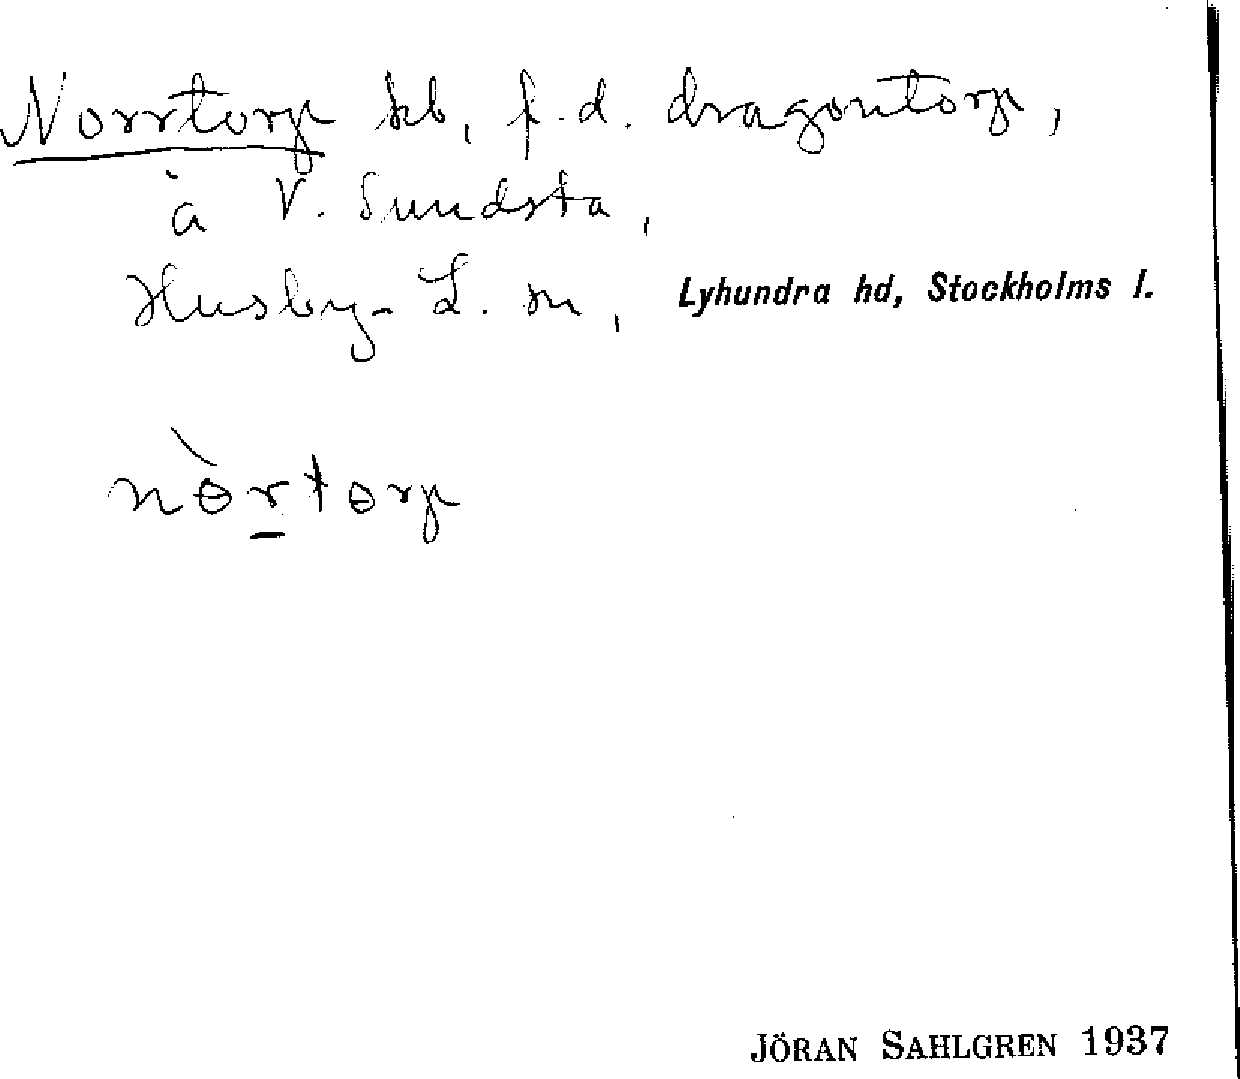 Norrtorp hb, f.d. dragontorp,
à V. Sundsta,
Husby-L. sn, Lyhundra hd, Stockholms l.
nɵ̀r̲tɵrp
JÖRAN SAHLGREN 1937